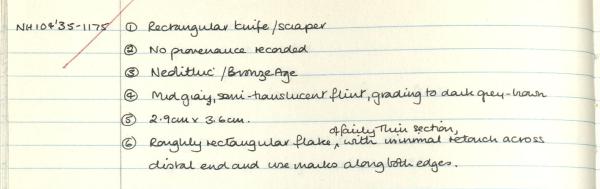 NH104'35-1175 ① Rectangular knife/scraper
② No provenance recorded
③ Neolithic / Bronze Age
④ Mid gray, semi-translucent flint, grading to dark grey-brown
⑤ 2.9cm x 3.6cm.
⑥ Roughly rectangular flake, of fairly thin section, with minimal retouch across
distal end and use marks along both edges.